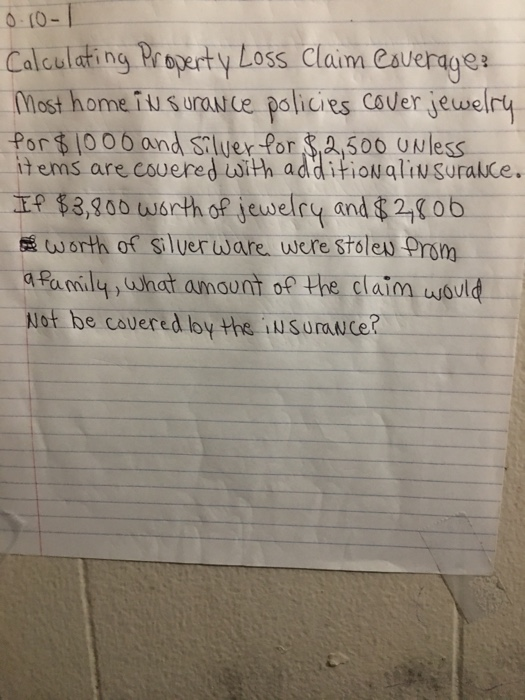 0.10-1
Calculating Property Loss Claim Coverage:
Most home insurance policies cover jewelry
for $1000 and silver for $2,500 unless
items are covered with additional insurance.
If $3,800 worth of jewelry and $2,800
worth of silverware were stolen from
a family, what amount of the claim would
Not be covered by the insurance?